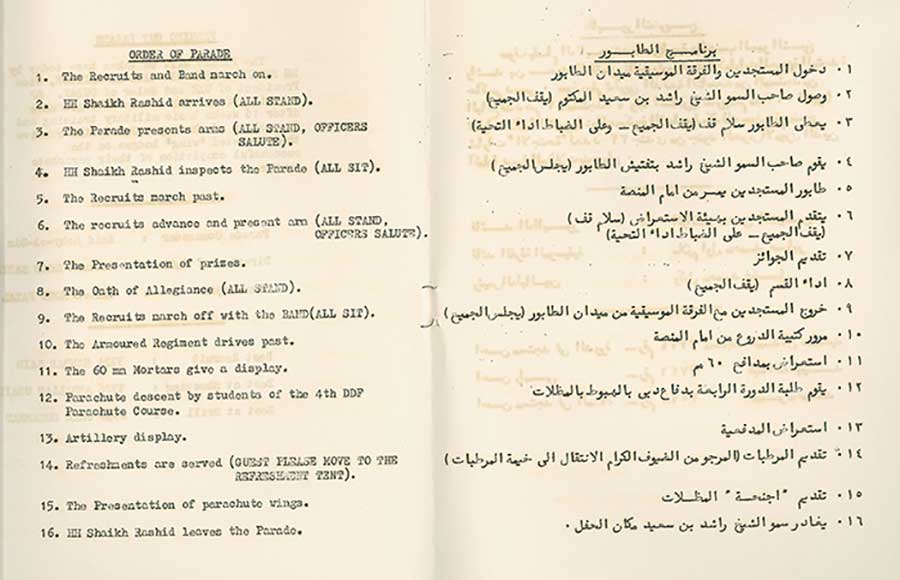 ORDER OF PARADE
1. The Recruits and Band march on.
2. HH Shaikh Rashid arrives (ALL STAND).
3. The Parade presents arms (ALL STAND, OFFICERS
SALUTE).
4. HH Shaikh Rashid inspects the Parade (ALL SIT).
5. The Recruits march past.
6. The recruits advance and present arm (ALL STAND,
OFFICERS SALUTE).
7. The Presentation of prizes.
8. The Oath of Allegiance (ALL STAND).
9. The Recruits march off with the BAND(ALL SIT).
10. The Armoured Regiment drives past.
11. The 60 mm Mortars give a display.
12. Parachute descent by students of the 4th DDF
Parachute Course.
13. Artillery display.
14. Refreshments are served (GUEST PLEASE MOVE TO THE
REFRESHMENT TENT).
15. The Presentation of parachute wings.
16. HH Shaikh Rashid leaves the Parade.
برنامج الطابور
١٠ دخول المستجدين والفرقة الموسيقية ميدان الطابور
٢٠ وصول صاحب السمو الشيخ راشد بن سعيد المكتوم (يقف الجميع)
٣٠ يعطى الطابور سلام قف (يقف الجميع — وعلى الضباط اداء التحية)
٤٠ يقوم صاحب السمو الشيخ راشد بتفتيش الطابور (يجلس الجميع)
٥٠ طابور المستجدين يمر من امام المنصة
٦٠ يتقدم المستجدين بهيئة الاستعراض (سلام قف)
(يقف الجميع — على الضباط اداء التحية)
٧٠ تقديم الجوائز
٨٠ اداء القسم (يقف الجميع)
٩٠ خروج المستجدين مع الفرقة الموسيقية من ميدان الطابور (يجلس الجميع)
١٠٠ مرور كتيبة الدروع من امام المنصة
١١٠ استعراض بمدافع ٦٠ م
١٢٠ يقوم طلبة الدورة الرابعة بدفاع دبى بالهبوط بالمظلات
١٣٠ استعراض المدفعية
١٤٠ تقديم المرطبات (المرجو من الضيوف الكرام الانتقال الى خيمة المرطبات)
١٥٠ تقديم "اجنحة" المظلات
١٦٠ يغادر سمو الشيخ راشد بن سعيد مكان الحفل ٠